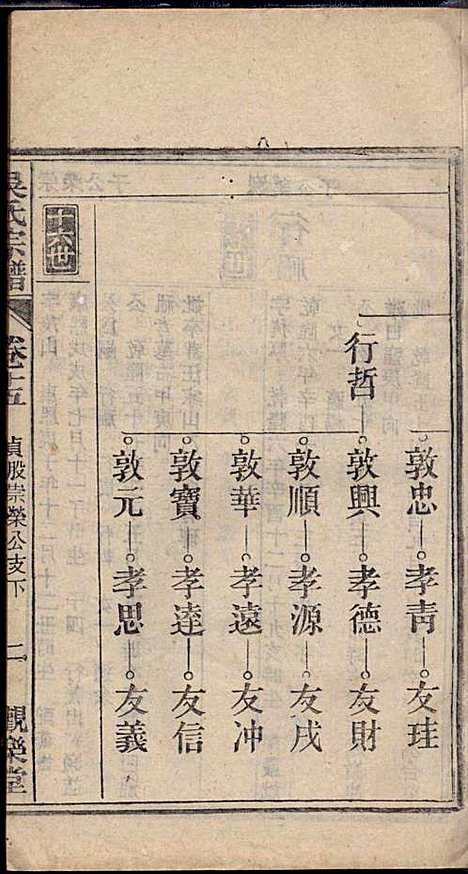 敦忠 孝靑 友珪
行哲 敦興 孝德 友財
敦順 孝源 友戌
敦華 孝遠 友冲
敦寶 孝達 友信
敦元 孝思 友義
吳氏宗譜 卷之十五 貞股崇榮公支下 二 觀樂堂